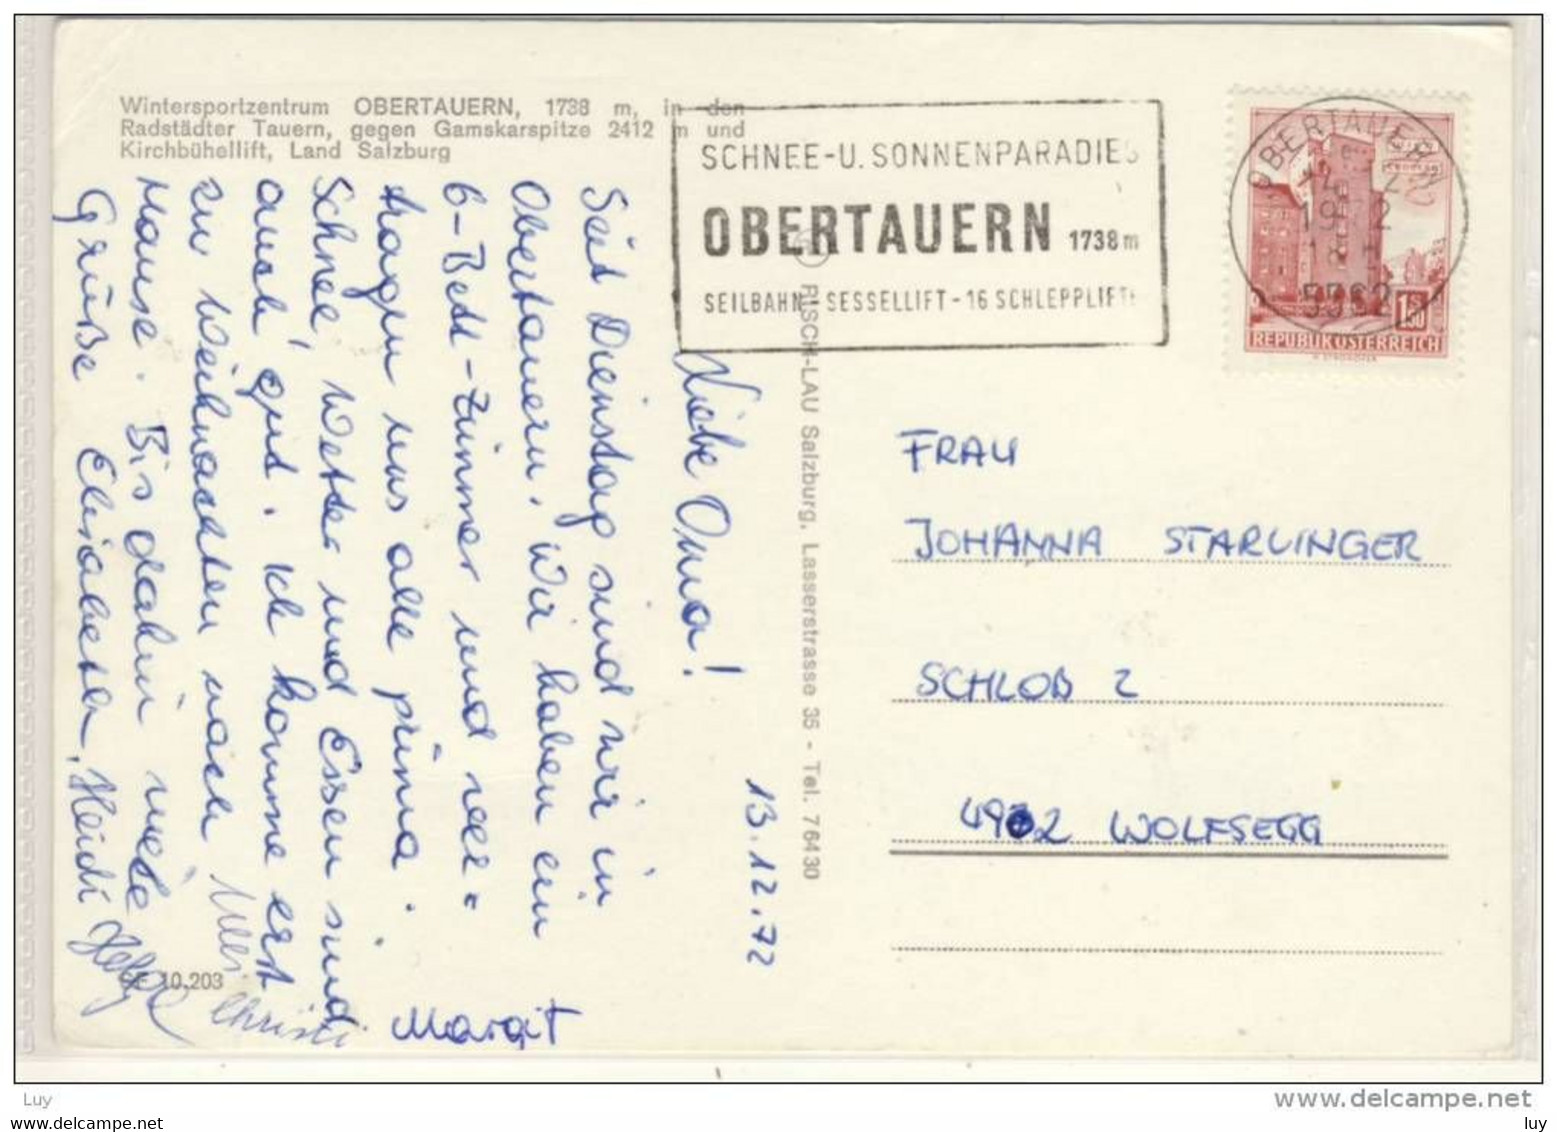 Wintersportzentrum OBERTAUERN, 1738 m, in den
Radstädter Tauern, gegen Gamskarspitze 2412 m und
Kirchbühellift, Land Salzburg
SCHNEE-U. SONNENPARADIES
OBERTAUERN 1738 m
SEILBAHN SESSELLIFT - 16 SCHLEPPLIFTE
OBERTAUERN
5562
1.50
REPUBLIK ÖSTERREICH
13.12.72
Liebe Oma!
Seit Dienstag sind wir in
Obertauern. Wir haben ein
6-Bett-Zimmer und ver=
tragen uns alle prima.
Schnee, Wetter und Essen sind
auch gut. Ich komme erst
zu Weihnachten nach
Hause. Bis dahin viele
Grüße Elisabeth, Heidi Helga
Uli
Christi
Margit
RF 10.203
RISCH-LAU Salzburg, Lasserstrasse 35 - Tel. 76430
FRAU
JOHANNA STARLINGER
SCHLOß 2
4902 WOLFSEGG
Luy
www.delcampe.net
luv (Old Postcards)